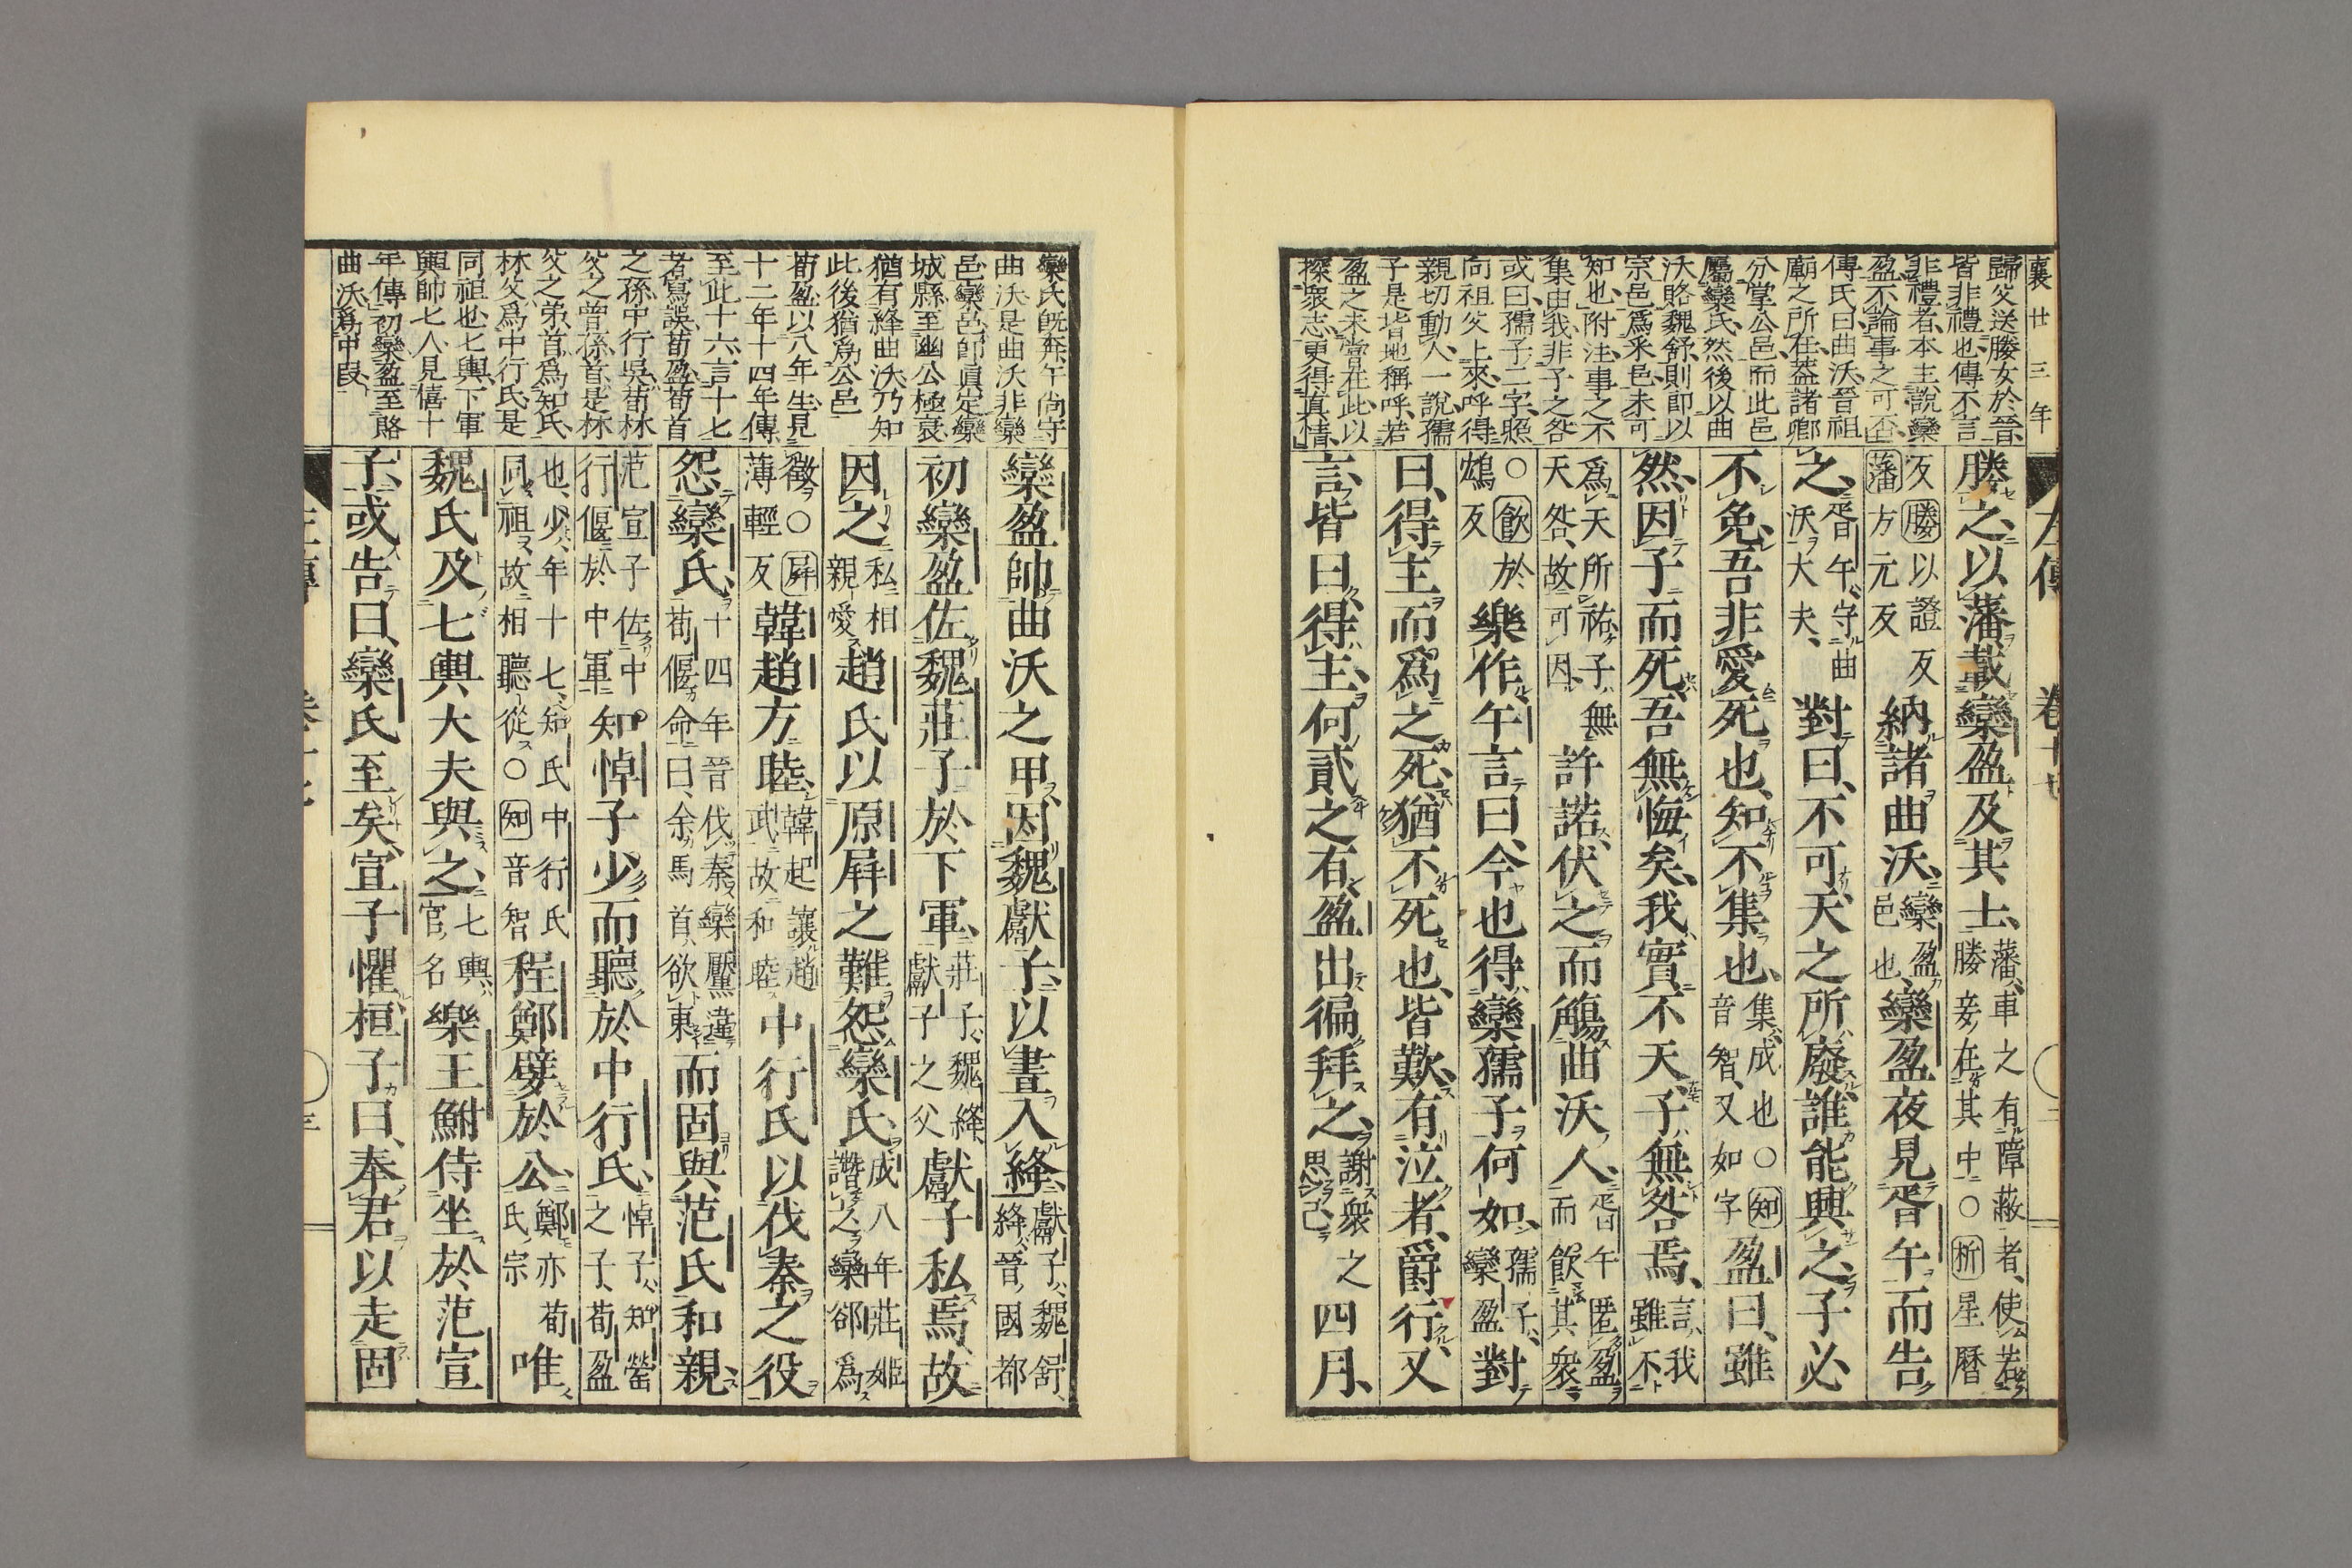 襄廿三年
歸父送媵女於晉
皆非禮也傳不言
非禮者本主說欒
盈不論事之可否
傳氏曰曲沃晉祖
廟之所在葢諸卿
分掌公邑而此邑
屬欒氏然後以曲
沃賂魏舒則即以
宗邑爲釆邑未可
知也附注事之不
集由我非子之咎
或曰孺子二字照
向祖父上來呼得
親切動人一說孺
子是皆地稱呼若
盈之未嘗在此以
探衆志更得真情
左傳 卷十七
媵之以藩載欒盈及其士藩車之有障蔽者使若
媵妾在其中○析星曆
反媵以證反
藩方元反納諸曲沃欒盈
邑也欒盈夜見胥午而告
之胥午守曲
沃大夫對曰不可天之所廢誰能興之子必
不免吾非愛死也知不集也集成也○知
音智又如字盈曰雖
然因子而死吾無悔矣我實不天子無咎焉言我
雖不
爲天所祐子無
天咎故可因許諾伏之而觴曲沃人胥午匿盈
而飲其衆
○飲於
鴆反樂作午言曰今也得欒孺子何如孺子
欒盈對
曰得主而爲之死猶不死也皆歎有泣者爵行又
言皆曰得主何貳之有盈出徧拜之謝衆之
思己四月
欒氏旣奔午尙守
曲沃是曲沃非欒
邑欒邑卽眞定欒
城縣至幽公極衰
猶有絳曲沃乃知
此後猶爲公邑
荀盈以八年生見
十二年十四年傳
至此十六言十七
者寫誤荀盈荀首
之孫中行吳荀林
父之曾孫首是林
父之弟首爲知氏
林父爲中行氏是
同祖也七輿下軍
輿帥七人見僖十
年傳初欒盈至賂
曲沃爲中段
欒盈帥曲沃之甲因魏獻子以晝入絳獻子魏舒
絳晉國都
初欒盈佐魏莊子於下軍莊子魏絳
獻子之父獻子私焉故
因之私相
親愛趙氏以原屛之難怨欒氏成八年莊姬
譖之欒郤爲
徵○屛
薄輕反韓趙方睦韓起讓趙
武故和睦中行氏以伐秦之役
怨欒氏十四年晉伐秦欒黶違
荀偃命曰余馬首欲東而固與范氏和親
范宣子佐中
行偃於中軍知悼子少而聽於中行氏悼子知罃
之子荀盈
也少年十七知氏中行氏
同祖故相聽從○知音智程鄭嬖於公鄭亦荀
氏宗唯
魏氏及七輿大夫與之七輿
官名樂王鮒侍坐於范宣
子或告曰欒氏至矣宣子懼桓子曰奉君以走固